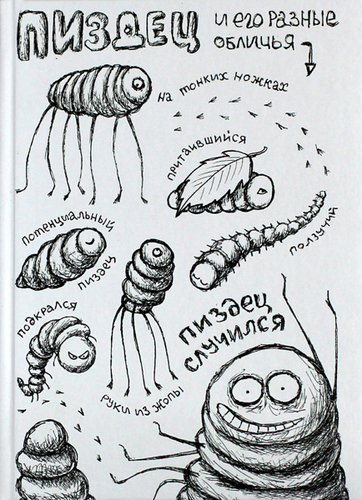 ПИЗДЕЦ
И ЕГО РАЗНЫЕ
ОБЛИЧЬЯ
НА ТОНКИХ НОЖКАХ
ПРИТАИВШИЙСЯ
ПОТЕНЦИАЛЬНЫЙ
ПИЗДЕЦ
ПОЛЗУЧИЙ
ПОДКРАЛСЯ
РУКИ ИЗ ЖОПЫ
ПИЗДЕЦ
СЛУЧИЛСЯ